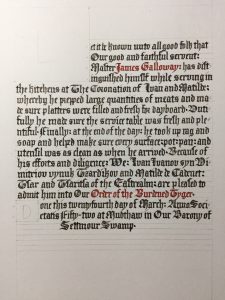 e it known unto all good folk that
Our good and faithful servent:
Master James Galloway: has dist
inguished himself while serving in
the kitchens at The Coronation of Ivan and Matilde:
whereby he prepped large quantities of meats and ma
de sure platters were filled and fresh for dayboard. Dut
fully he made sure the service table was fresh and ple-
ntiful. Finally: at the end of the day: he took up mg and
soap and helped make sure every surface: pot: pan: and
utensil was as clean as when he arrived. Because of
his efforts and diligence: We: Ivan Ivanov syn Di-
mitriov vynuk Tzardikov and Matilde de Cadenet:
Tsar and Tsaritsa of the Eastrealm: are pleased to
admit him into Our Order of the Burdened Tyger.
one this twentyfourth day of March: Anno Soci-
etatis fifty-two at Mudthaw in Our Barony of
Settmour Swamp.